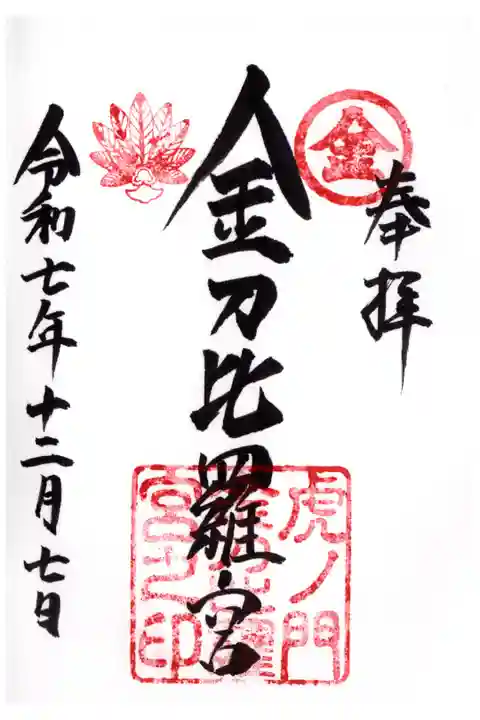 金
奉拝
金刀比羅宮
虎ノ門
金刀比羅
宮之印
令和七年十二月七日